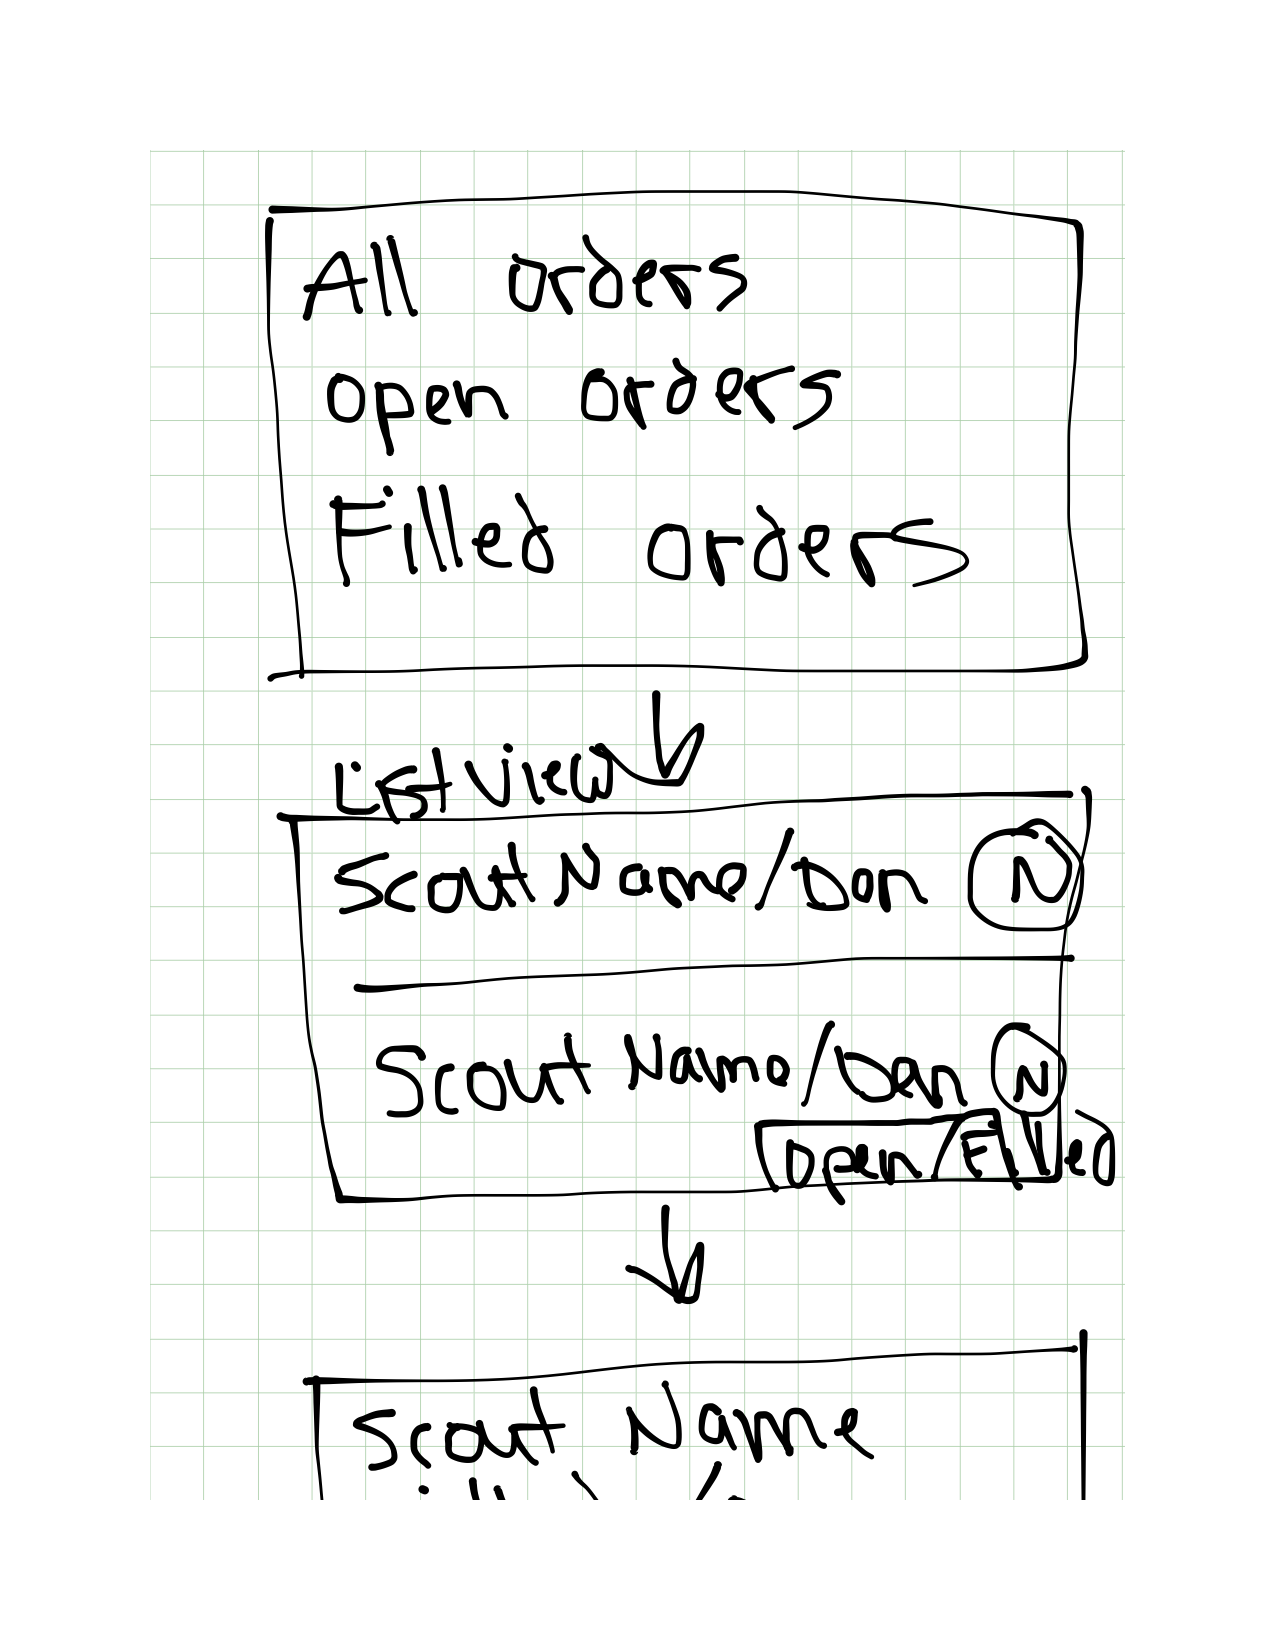 All orders
open orders
Filled orders
List View
Scout Name/Den N
Scout Name/Den N
open/Filled
Scout Name